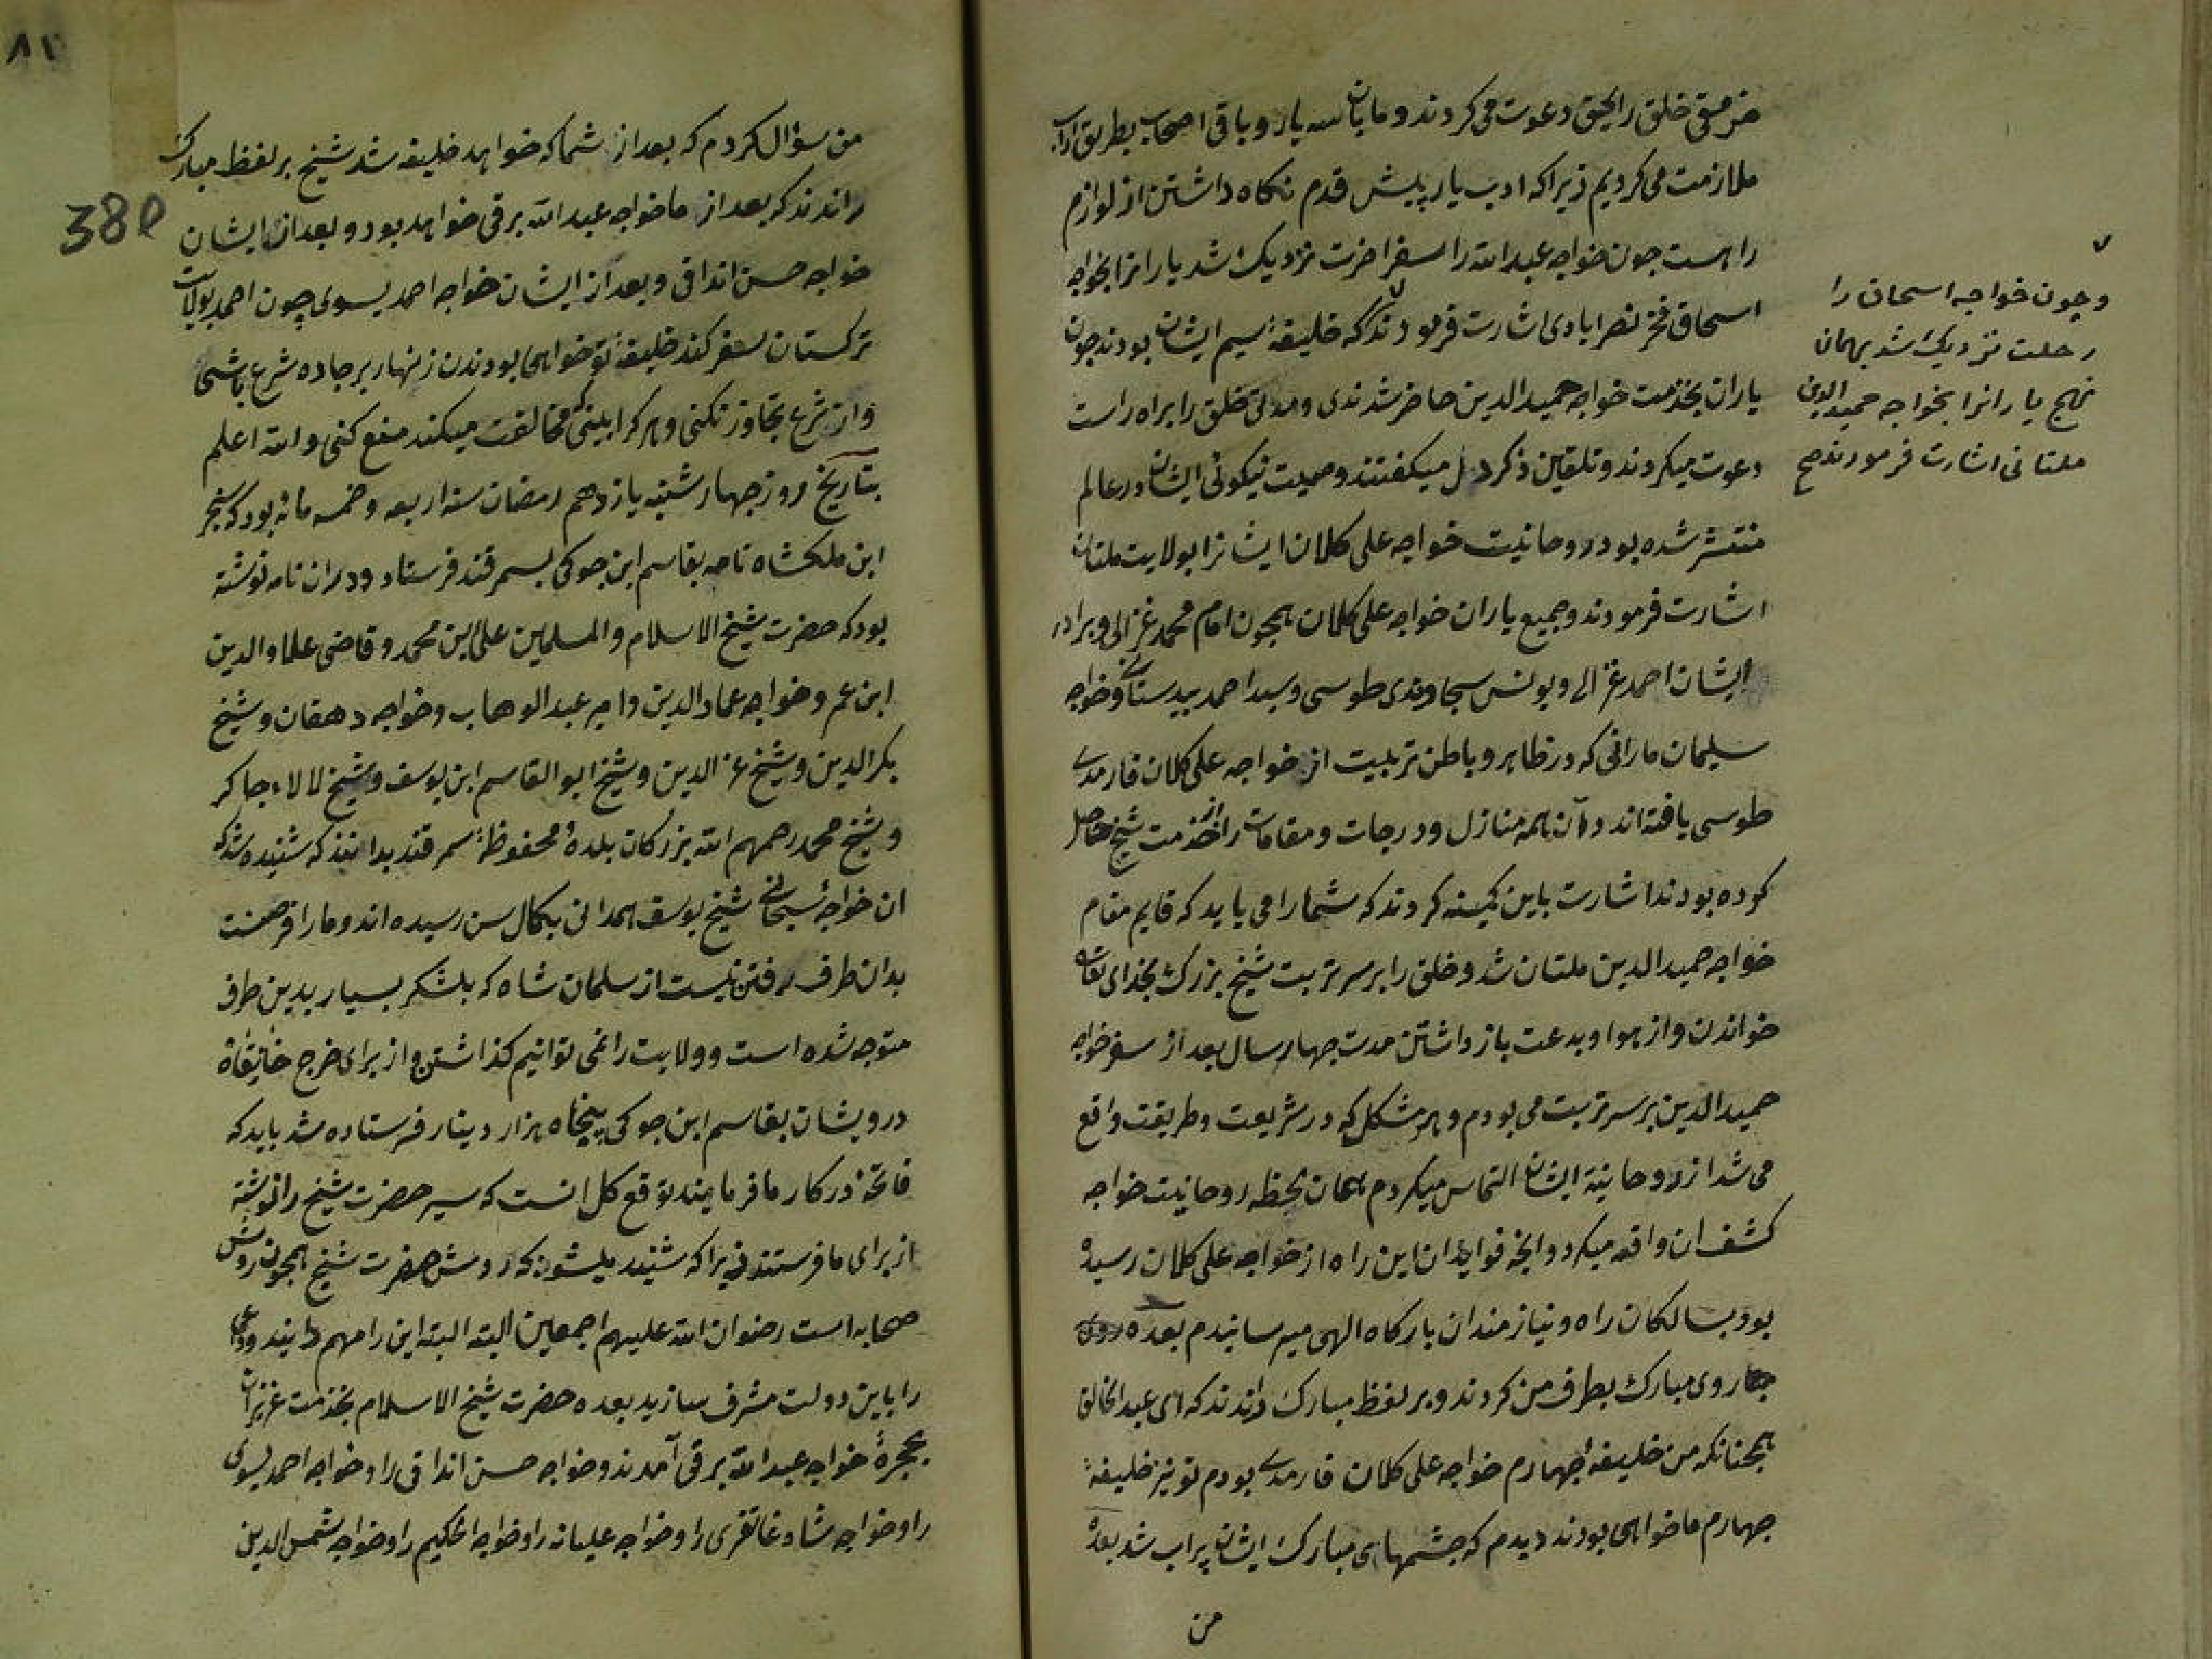 خرمیقی خلق را بحق دعوت می کردند و مایان سه یار و باقی اصحاب بطریق اداب
ملازمت می کردیم زیرا که ادب یار پیش قدم نکاه داشتن از لوازم
راهست جون خواجه عبد الله را سفر اخرت نزدیک شد یارانرا بخواجه
اسحاق فخر نصرابادی اشارت فرمودند که خلیفهٔ سیم ایشان بودند جون
یاران بخذمت خواجه حمید الدین حاضر شدندی و مدتی خلق را براه راست
دعوت میکردند و تلقین ذکر دل میکفتند و صیت نیکوئی ایشان در عالم
منتشر شده بود روحانیت خواجه علی کلان ایشانرا بولایت ملتان
اشارت فرمودند و جمیع یاران خواجه علی کلان همچون امام محمد غزالی و برادر
ایشان احمد غزالی و یونس سجاوندی طوسی و سید احمد بیدستانی و خواجه
سلیمان مارانی که در ظاهر و باطن تربیت از خواجه علی کلان فارمدی
طوسی یافته اند و آن همه منازل و درجات و مقامات را از خذمت شیخ حاصل
کرده بودند اشارت باین کمینه کردند که شما را می باید که قایم مقام
خواجه حمید الدین ملتان شد و خلق را بر سر تربت شیخ بزرک بخدای تعالی
خواندن و از هوا و بدعت باز داشتن مدت جهار سال بعد از سفر خواجه
حمید الدین بر سر تربت می بودم و هر مشکل که در شریعت و طریقت واقع
می شد از روحانیة ایشان التماس میکردم همان لحظه روحانیت خواجه
کشف ان واقعه میکرد و انجه فواید ان این راه از خواجه علی کلان رسیده
بود بسالکان راه و نیازمندان بارکاه الهی میرسانیدم بعده
روی مبارک بطرف من کردند و بر لفظ مبارک راندند که ای عبد الخالق
همجنانکه من خلیفهٔ جهارم خواجه علی کلان فارمدی بودم تو نیز خلیفهٔ
جهارم ما خواهی بودن دیدم که جشمهای مبارک ایشان پراب شد بعده
من
و جون خواجه اسحاق را
رحلت نزدیک شد بهمان
نهج یارانرا بخواجه حمید الدین
ملتانی اشارت فرمودند صح
من سؤال کردم که بعد از شما که خواهد خلیفه شد شیخ بر لفظ مبارک
راندند که بعد از ما خواجه عبد الله برقی خواهد بود و بعد از ایشان
خواجه حسن انداقی و بعد از ایشان خواجه احمد یسوی جون احمد بولایت
ترکستان سفر کند خلیفه تو خواهی بودن زنهار بر جاده شرع باشی
و از شرع تجاوز نکنی و هر کرا بینی که مخالفت میکند منع کنی و الله اعلم
بتاریخ روز جهارشنبه یازدهم رمضان سنه اربعه و خمسمائه بود که سنجر
ابن ملکشاه نامه بقاسم ابن جوکی بسمرقند فرستاد و در ان نامه نوشته
بود که حضرت شیخ الاسلام و المسلمین علی ابن محمد و قاضی علاء الدین
ابن عم و خواجه عماد الدین و امیر عبد الوهاب و خواجه دهقان و شیخ
بکر الدین و شیخ عز الدین و شیخ ابو القاسم ابن یوسف و شیخ لالاء جاکر
و شیخ محمد رحمهم الله بزرکان بلدهٔ محفوظهٔ سمرقند بدانند که شنیده شد که
ان خواجهٔ سبحانی شیخ یوسف همدانی بکمال سن رسیده اند و ما را فرصت
بدان طرف رفتن نیست از سلمان شاه که بلشکر بسیار بدین طرف
متوجه شده است و ولایت را نمی توانیم کذاشتن و از برای خرج خانقاه
درویشان بقاسم ابن جوکی پنجاه هزار دینار فرستاده شد باید که
فاتحه در کار ما فرمایند توقع کل انست که سیر حضرت شیخ را نوشته
از برای ما فرستند زیرا که شنیده میشود که روش حضرت شیخ همجون روش
صحابه است رضوان الله علیهم اجمعین البته البته این را مهم دانند و داعی
را باین دولت مشرف سازید بعده حضرت شیخ الاسلام بخذمت عزیزان
بحجرهٔ خواجه عبد الله برقی آمدند و خواجه حسن انداقی را و خواجه احمد یسوی
را و خواجه شاد غاتفری را و خواجه علیانه را و خواجه الحکیم را و خواجه شمس الدین
380